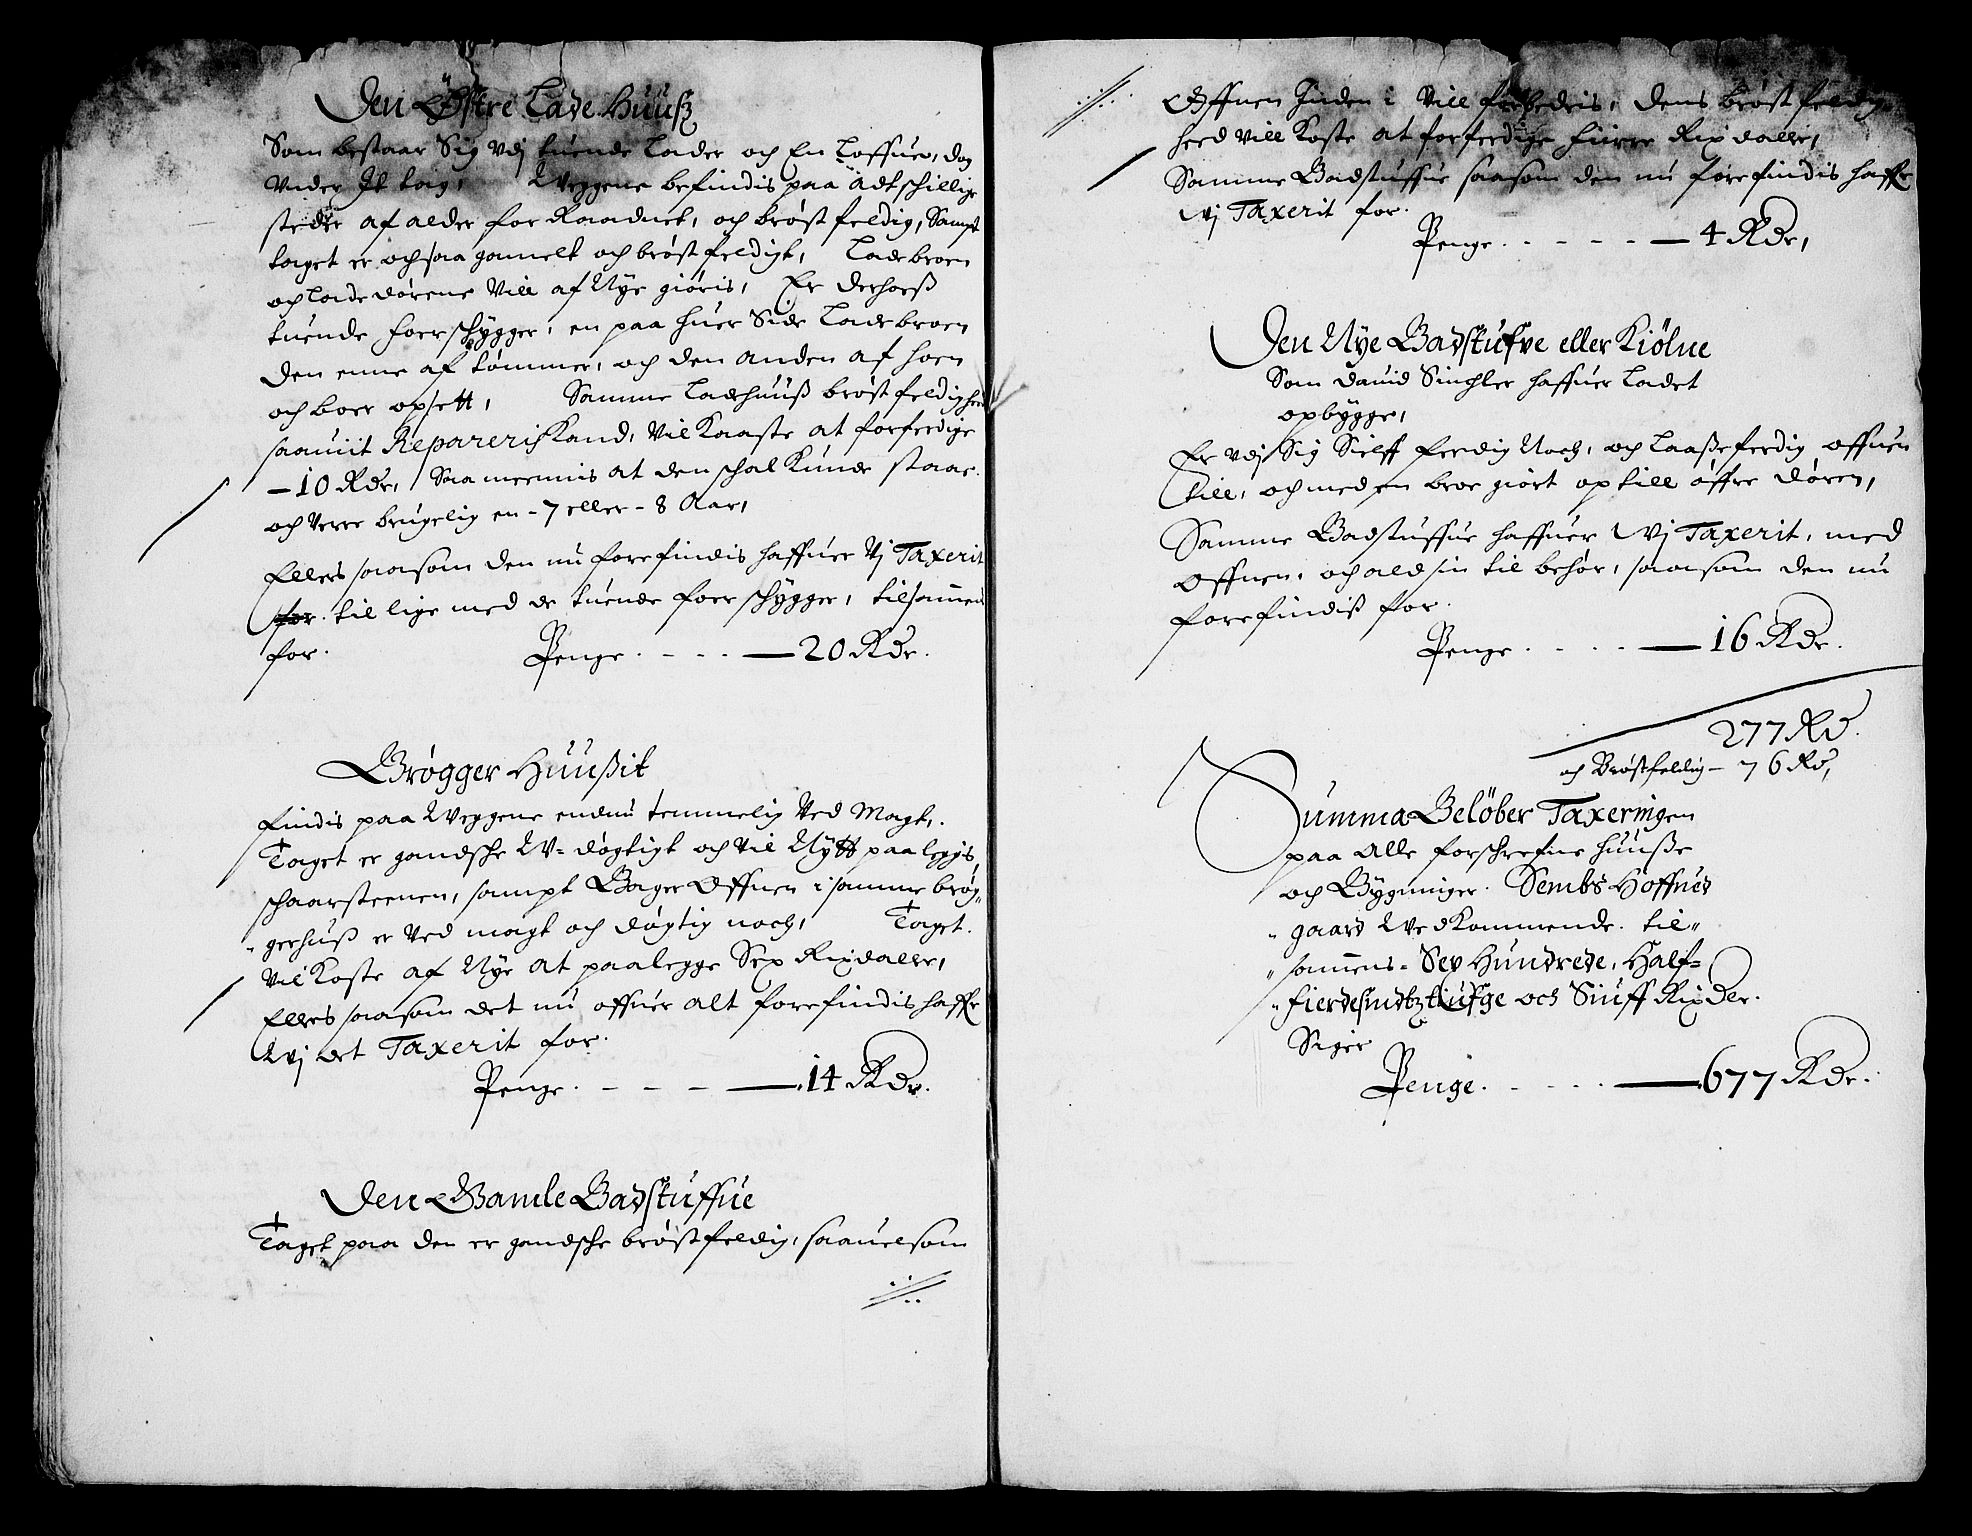 Den Østre Lade Huuß
Som bestaar Sig vdj tuende Lader och En Loffue, dog
vnder It tag, Weggene befindis paa adtschillige
steder af alder for Raadnet, och brøstfeldig, Sampt
taget er ochsaa gamelt och brøstfeldigt, Ladebroen
op Ladedørene Vill af Nye giøris, Er derhoeß
tuende foerschygger, en paa huer Side Ladebroen
den enne af tømmer, och den anden af hoen
och boer opsett, Samme Ladehuuß brøstfeldighed
saauiit Repareris Kand, Vil Kaaste at forferdige
— 10 Rdr, Saa meenis at den schal Kunde staae
och Verre brugelig en - 7 eller - 8 Aar,
Ellers saasom den nu forefindis haffuer Vj Taxerit
for tillige med de tuende foerschygger, tilsammen
for.
Penge. - - - — 20 Rdr.
Brøgger Huußit
findis paa Weggene endnu temmelig Ved Magt,
Taget er gandsche W-døgtigt och Vil Nytt paa leggis,
schaarsteenen, sampt Bager Offuen i samme brøg„
„gerhuß er Ved magt och døgtig noch, Taget
Vil Koste af Nye at paalegge Sex Rixdaller,
Ellers saasom det nu offuer alt forefindis haffr
Wj det Taxerit for.
Penge. - - - — 14 Rdr.
Den Gamle Badstuffue
Taget paa den er gandsche brøstfeldig, saauelsom
Offnen Inden i Vill forbedris, dens brøstfeldig„
heed Vill Koste at forferdige fiirre Rixdaller,
Samme Badstuffue saasom den nu forefindis haffr
Wj Taxerit for.
Penge. - - - - — 4 Rdr,
Den Nye Badstufve eller Kiölne
Som Dauid Sinchler haffuer Ladet
opbygge,
Er vdj Sig Sielff ferdig Noch, och Laaßeferdig offuen
till, och med en broe giort op till öffre døren,
Samme Badstuffue haffuer Wj Taxerit, med
Offnen, och ald sin til behör, saasom den nu
forefindiß for.
Penge. - - - - — 16 Rdr.
277 Rd.
och Brøstfeldig — 76 Rd,
Summa Belöber Taxeringen
paa Alle forschrefne huuße
och Bygninger. Sembs Hoffued
„gaard Wedkommende. til„
„sammens - Sex Hundrede, Half-
„fierdesindtztiufge och Siuff Rixdlr.
Siger
Penge. - - - - — 677 Rdr.